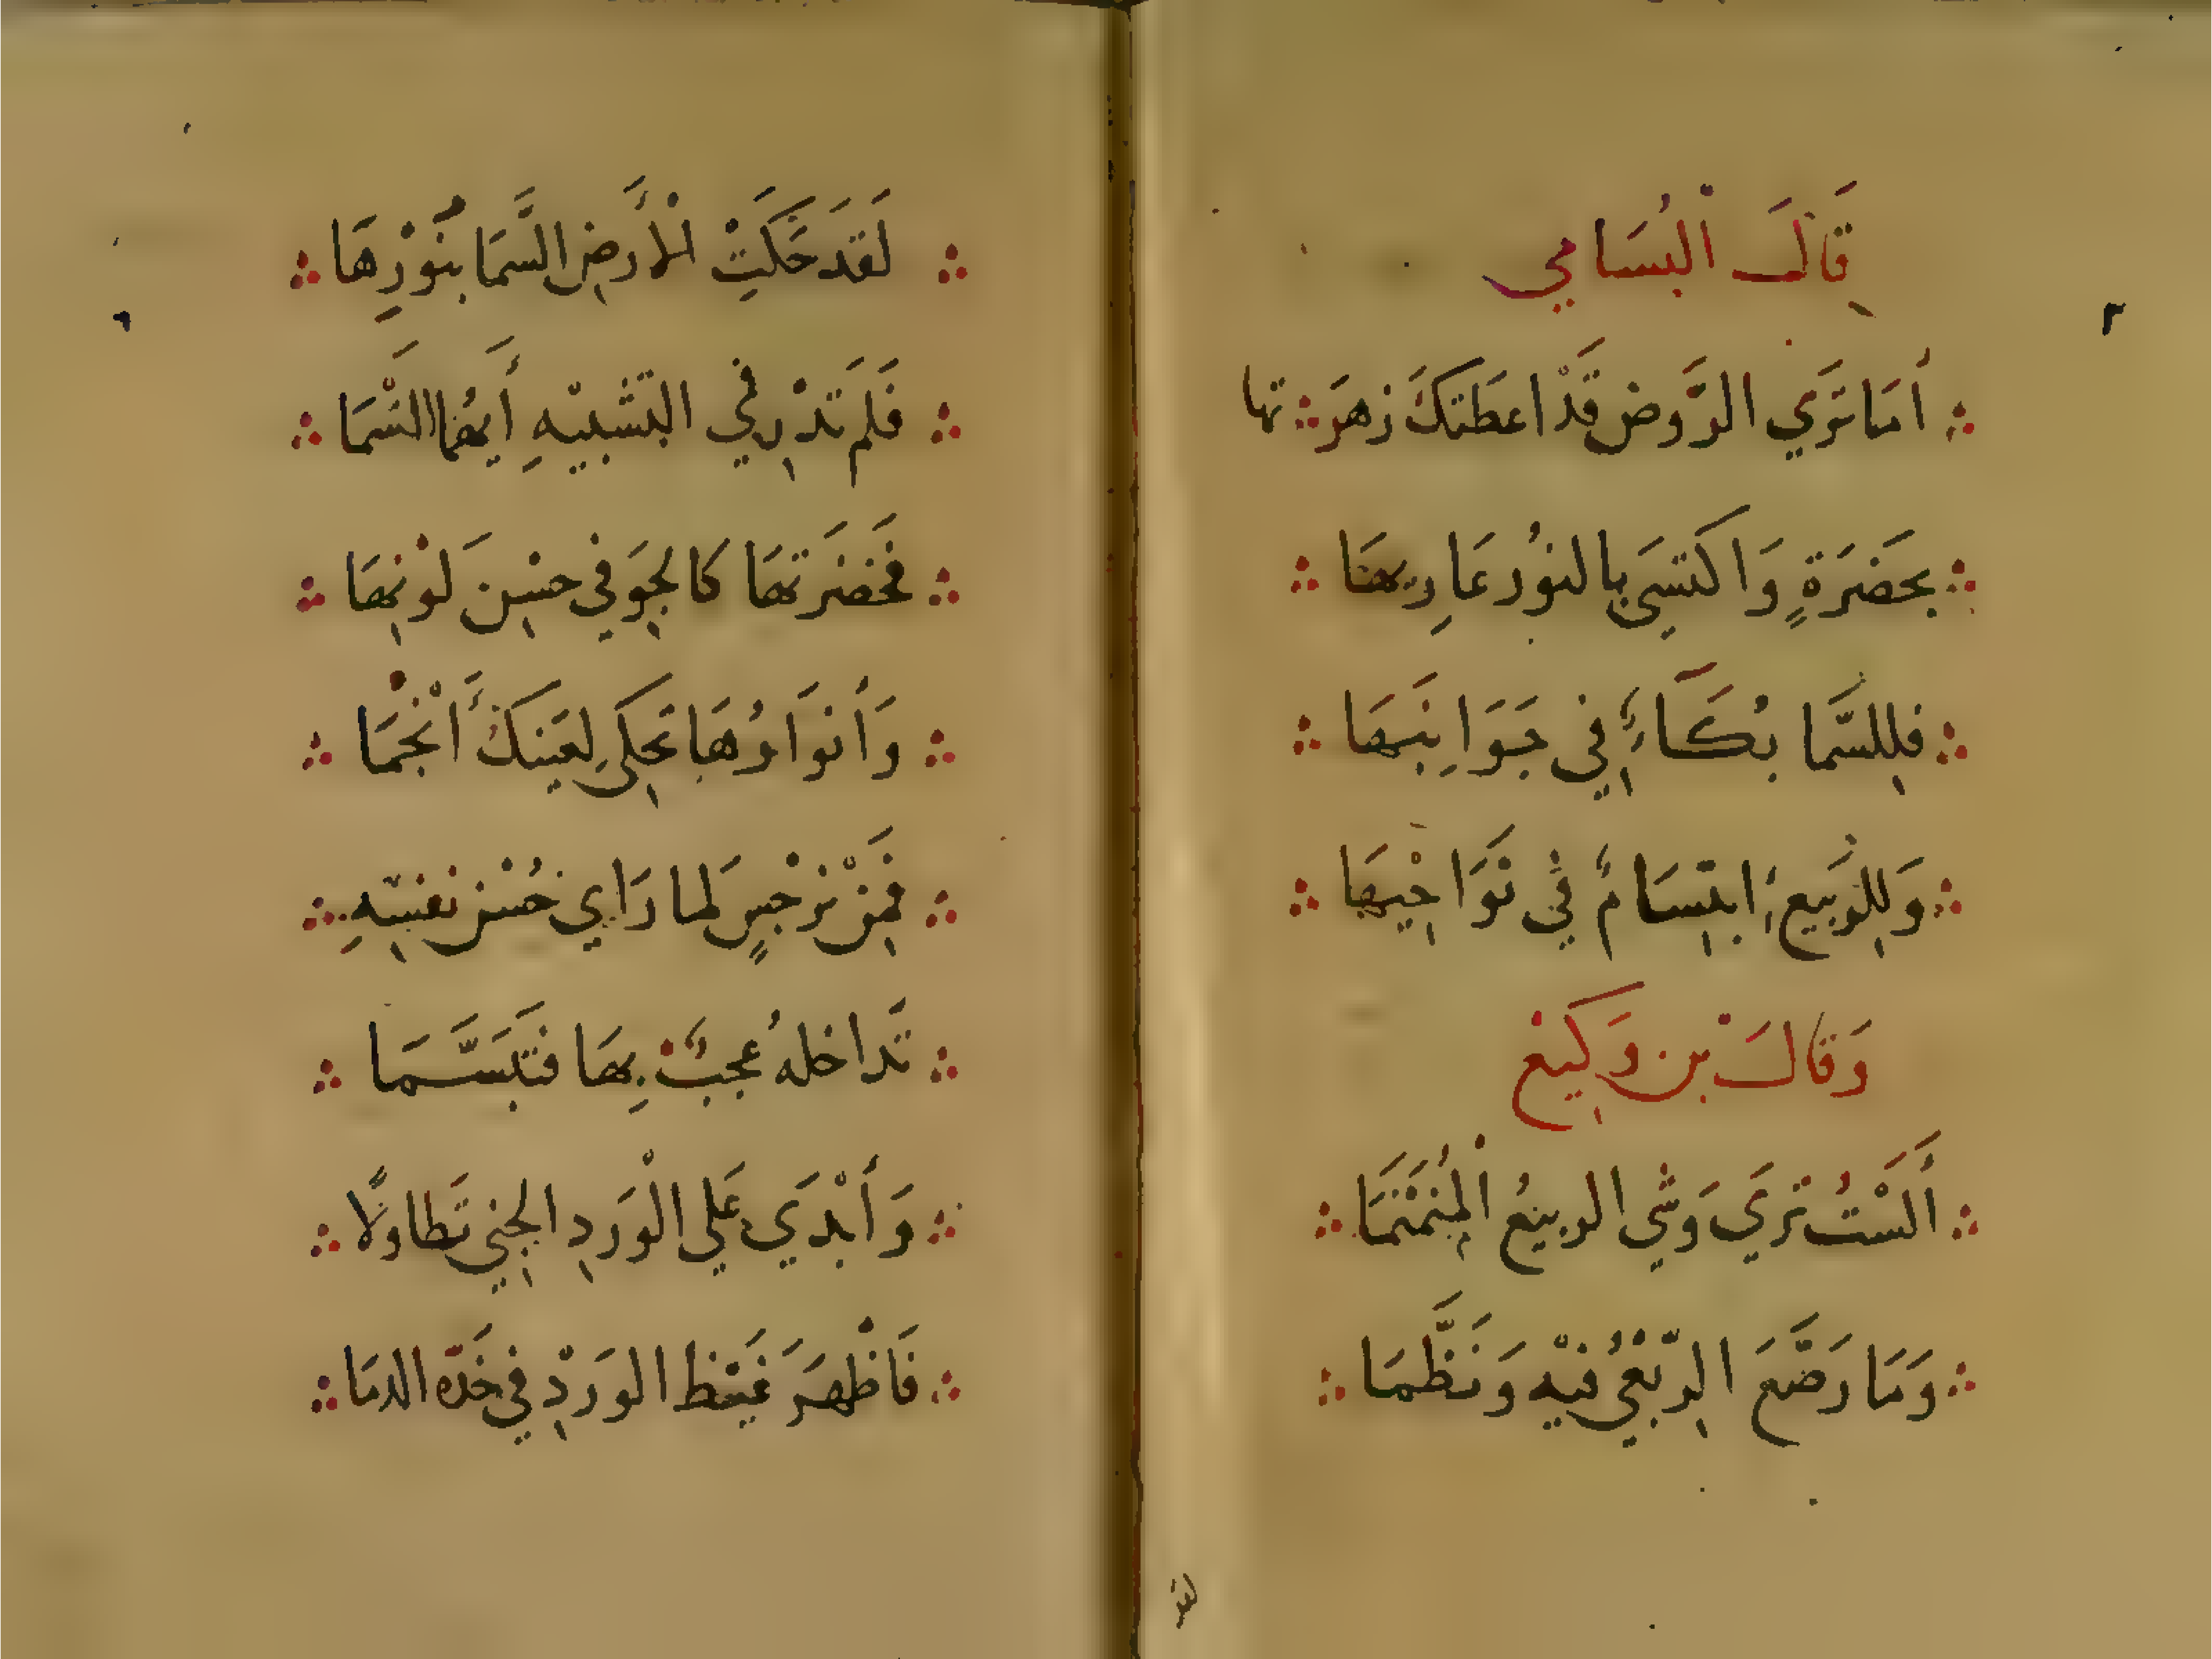 قَالَ الْبُسَامِي
أَمَا تَرَي الرَّوض قَدْ اعطَتكَ زهرَتها
بخضَرَةٍ وَاكتسَى بالنوُر عَارِيهَا
فلِلسَّمَا بُكَاءٌ في جَوَانِبهَا
وَلِلرَّبيع ابتِسَامٌ في نَوَاحِيهَا
وَقَالَ بن وَكِيع
أَلَسْتُ تَرَي وَشْي الربيعُ الْمُنَمْنَمَا
وَمَا رَصَّعَ الرّبْعيُ فيْه وَنَظَّمَا
٢
لقد
لَقَدَ حَكَتْ الْأَرضِ السَّمَا بنَوْرِهَا
فَلَم تَدْرِ في التشْبيْهِ أَيهُمَا السَّمَا
فَخضرَتهَا كالجوَ في حسْنِ لَوْنِهَا
وَأَنوَاُرهَا تحكِي لِعَينكَ أَنْجُمَا
فمِنْ نرْجسٍ لَما رَاي حُسْن نفسِهِ
تَداخلهُ عُجبٌ بِهَا فَتَبَسَّمَا
وَأَبْدَي عَلي الْوَردِ الجنِي تَطاولًا
فَأَظْهرَ غَيْظ الوَردِ في خَدّه الدمَا